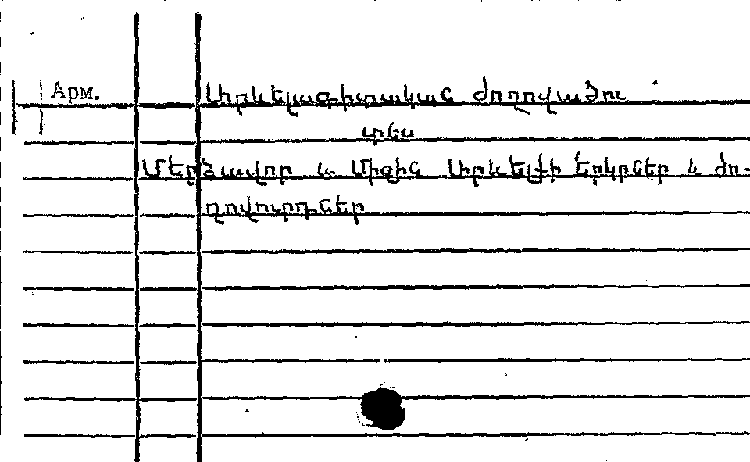 Арм.
Արևելագիտական ժողովածու
տես
Մերձավոր և Միջին Արևելքի երկրներ և ժո-
ղովուրդներ